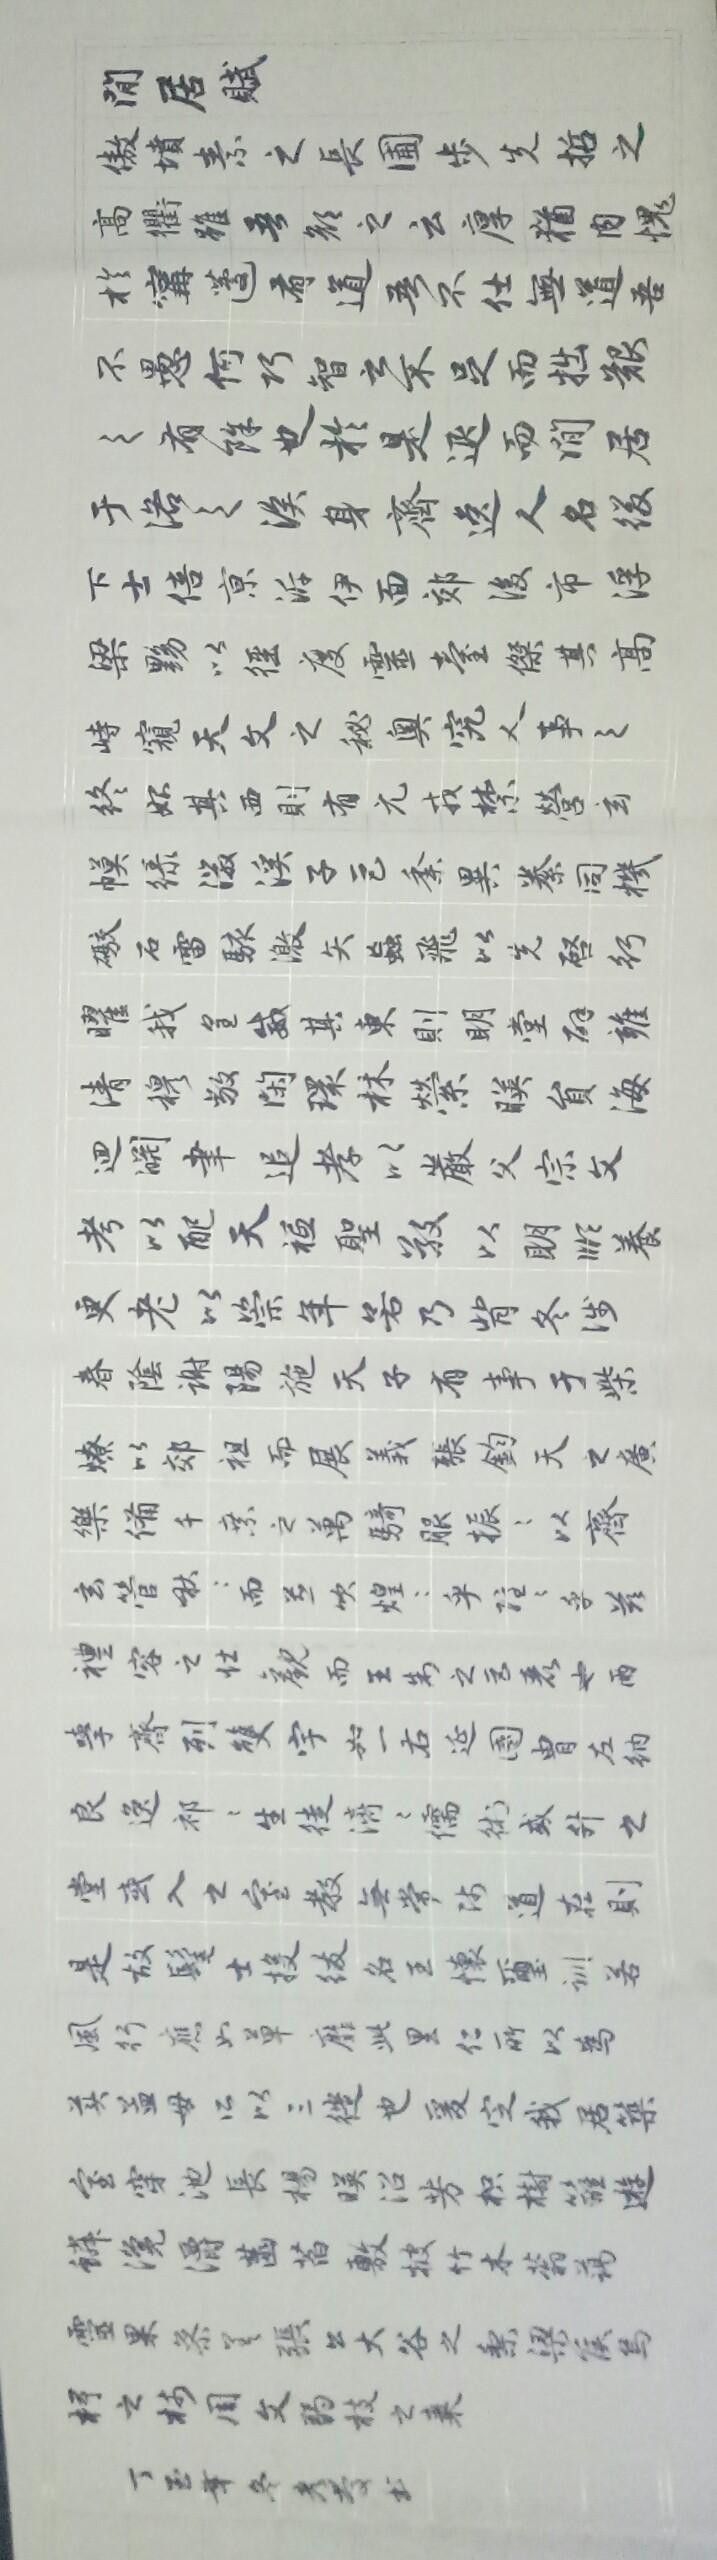 閒居賦
傲墳素之長圃步先哲之
高衢雖吾顏之云厚猶內愧
於甯蘧有道吾不仕無道吾
不愚何巧智之不足而拙艱
之有餘也於是退而閒居
于洛之涘身齊逸人名綴
下士倍京泝伊面郊後市浮
梁黝以徑度靈臺傑其高
峙窺天文之秘奧究人事之
終始其西則有元戎禁營玄
幙綠徽溪子巨黍異絭同機
礮石雷駭激矢蝱飛以先啓行
曜我皇威其東則明堂辟雍
清穆敞閑環林縈映員海
迴淵聿追孝以嚴父宗文
考以配天祗聖敬以明順養
更老以崇年若乃背冬涉
春陰謝陽施天子有事于柴
燎以郊祖而展義張鈞天之廣
樂備千乘之萬騎服振〻以齊
玄管啾〻而並吹煌〻乎隱〻乎茲
禮容之壯觀而王制之巨麗也兩
學齊列雙宇如一右延國胄左納
良逸祁〻生徒濟〻儒術或升之
堂或入之室教無常師道在則
是故髦士投紱名王懷璽訓若
風行應如草靡此里仁所以為
美孟母所以三徙也爰定我居築
室穿池長楊映沼芳枳樹籬遊
鱗瀺灂菡萏敷披竹木蓊藹
靈果參差張公大谷之梨梁侯烏
椑之柿周文弱枝之棗
年冬